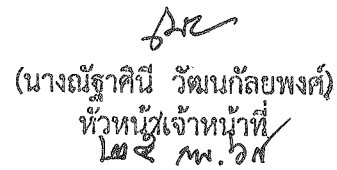 (นางณัฐาศินี วัฒนกัลยพงศ์)
หัวหน้าเจ้าหน้าที่
๒๕